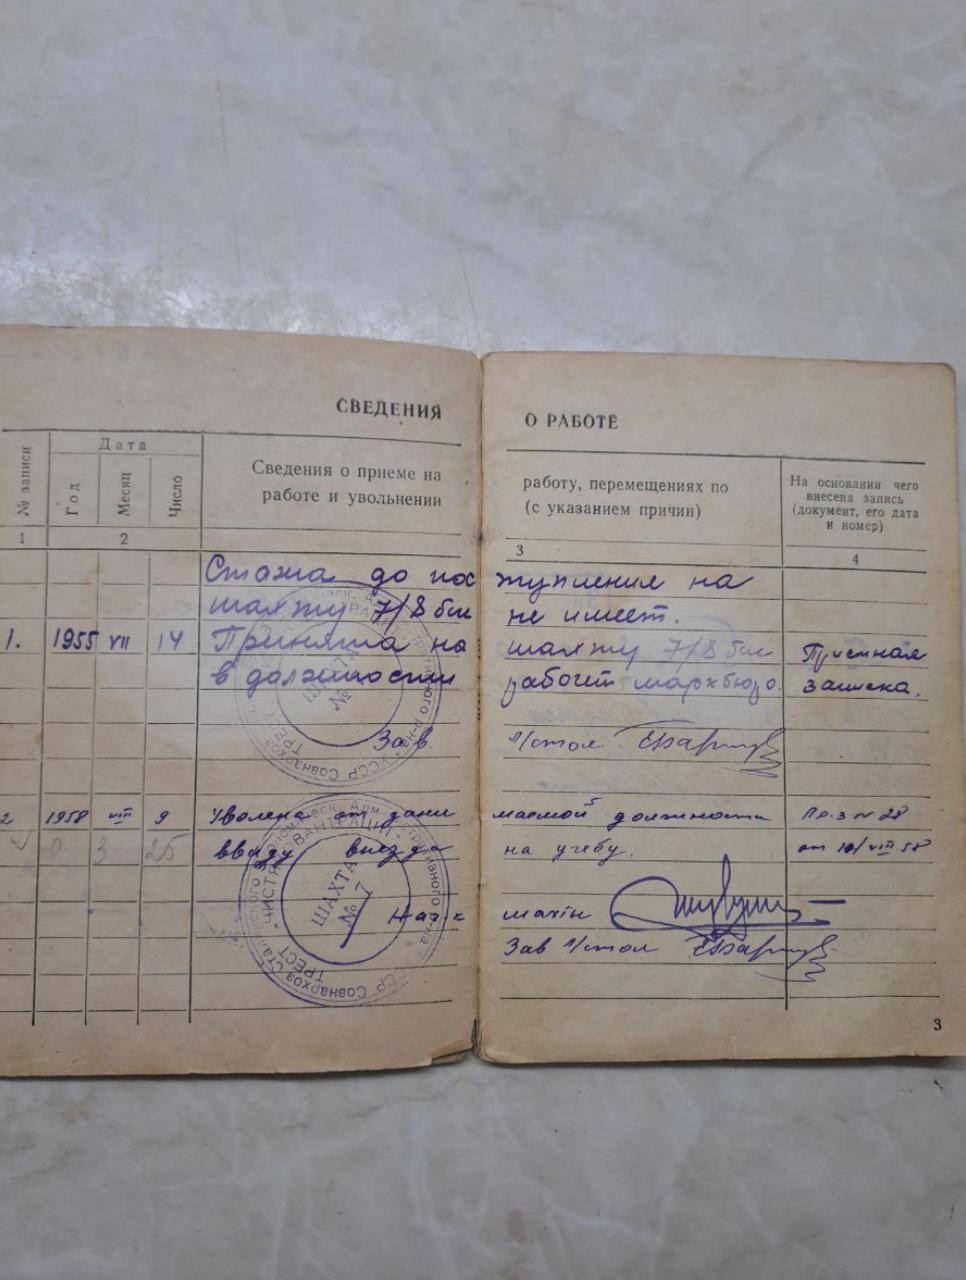 СВЕДЕНИЯ О РАБОТЕ
№ записи
Дата
Год
Месяц
Число
Сведения о приеме на работу, перемещениях по
работе и увольнении (с указанием причин)
На основании чего
внесена запись
(документ, его дата
и номер)
1 2 3 4
Стажа до поступления на
шахту 7/8 бис не имеет.
1. 1955 VII 14 Принята на шахту 7/8 бис Приемная
в должности рабочей мархбюро. записка.
Зав. п/стол
2 1958 VIII 9 Уволена от занимаемой должности Пр-з № 28
0 3 25 ввиду выезда на учебу. от 10/VIII 58
Нач-к шахты
Зав п/стол
ШАХТА
№
УССР Совнархоз
ТРЕСТ
ШАХТА
№ 7
УССР Совнархоз Сталинского Экономическ. Административного р-на
ТРЕСТ "ЧИСТЯКОВАНТРАЦИТ"
3